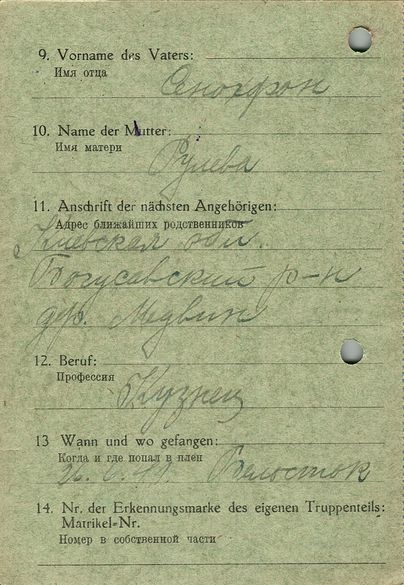 9. Vorname des Vaters:
Имя отца
Сенофон
10. Name der Mutter:
Имя матери
Рулева
11. Anschrift der nächsten Angehörigen:
Адрес ближайших родственников
Киевская обл.
Богусавский р-н
др. Медвин
12. Beruf:
Профессия
Кузнец
13 Wann und wo gefangen:
Когда и где попал в плен
Белосток
14. Nr. der Erkennungsmarke des eigenen Truppenteils:
Matrikel-Nr.
Номер в собственной части